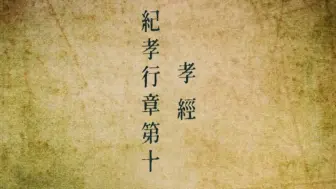 孝經
紀孝行章第十